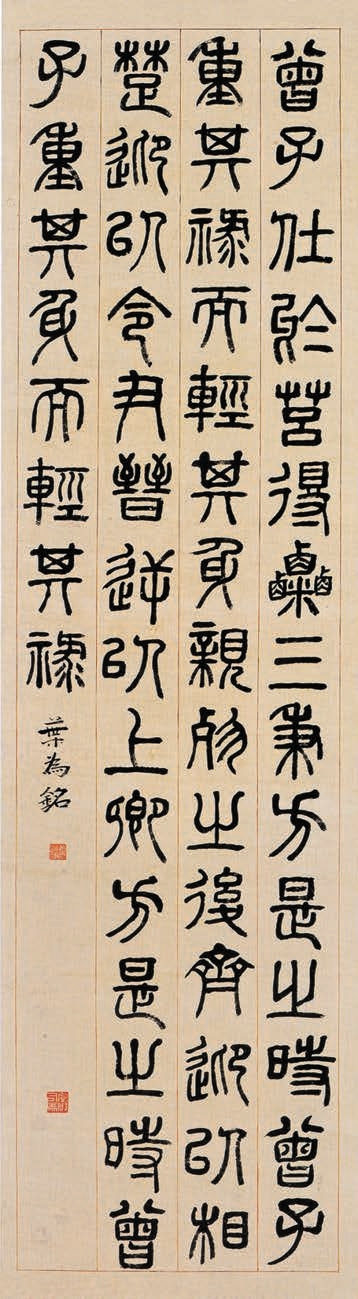 曾子仕於莒得粟三秉方是之時曾子
重其祿而輕其身親歿之後齊迎以相
楚迎以令尹晉迎以上卿方是之時曾
子重其身而輕其祿
葉為銘